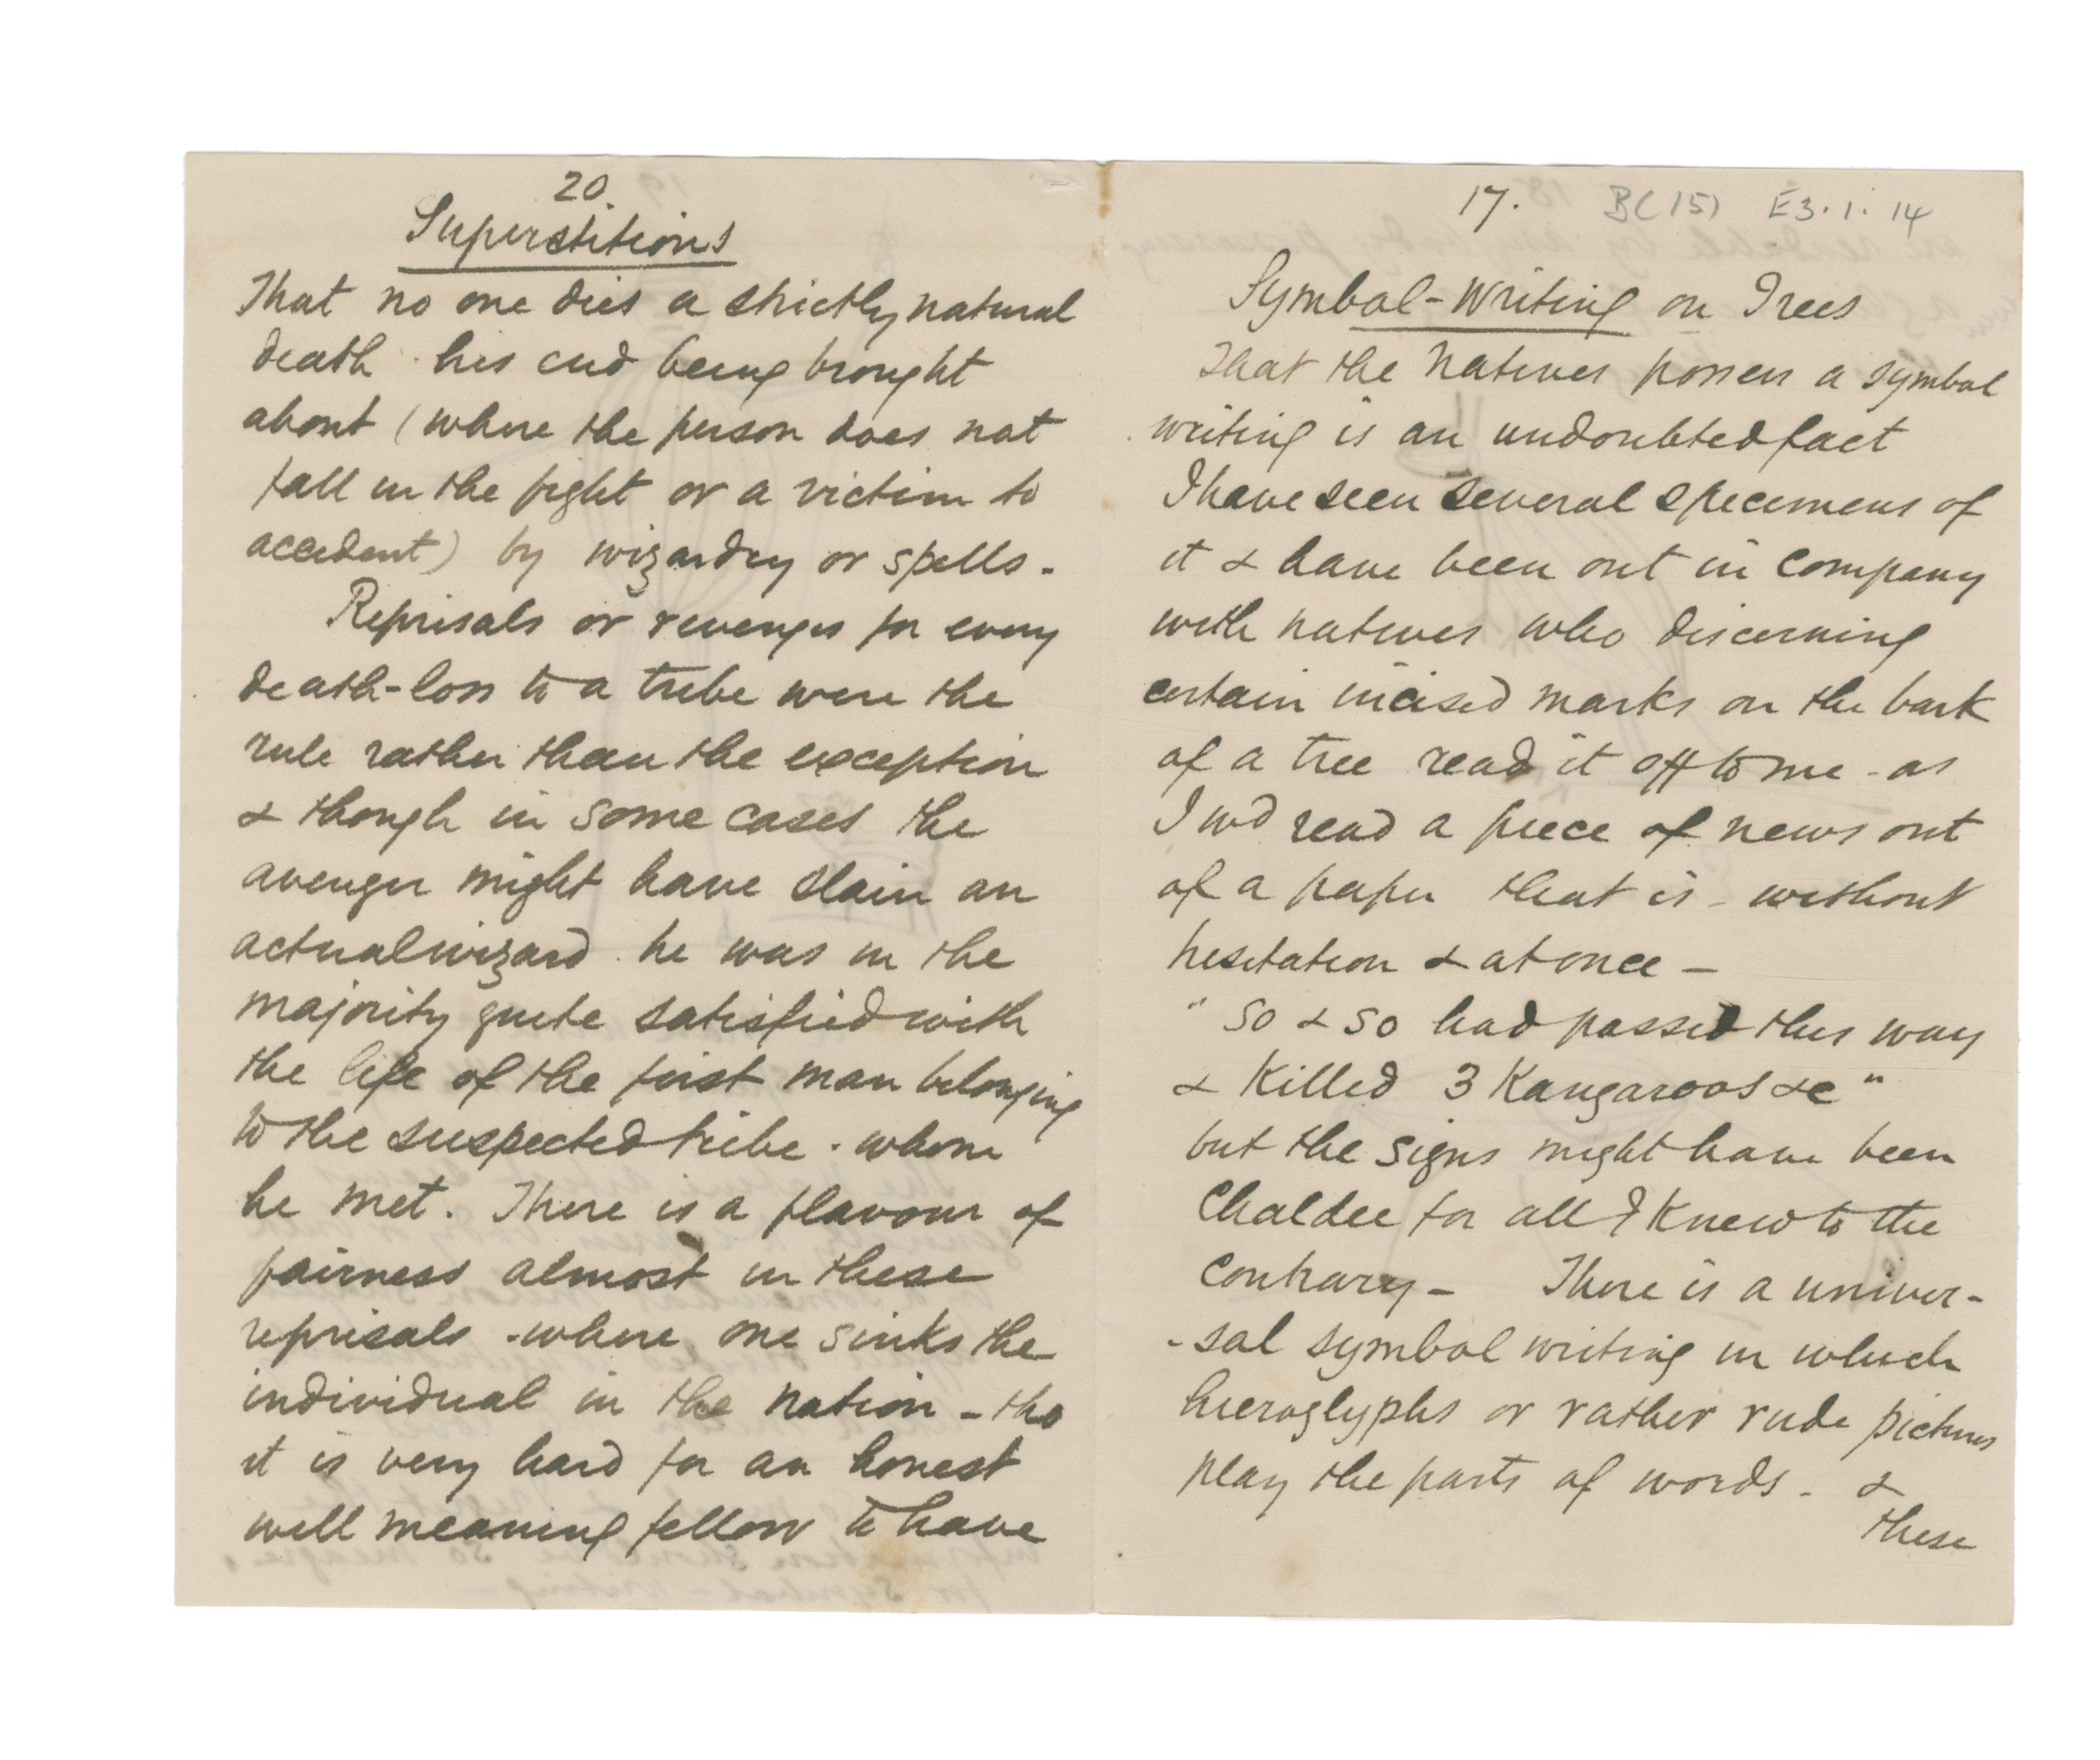 20.
Superstitions
That no one dies a strictly natural
death . his end being brought
about (where the person does not
fall in the fight or a victim to
accident) by wizardry or spells -
Reprisals or revenges for every
death-loss to a tribe were the
rule rather than the exception
& though in some cases the
avenger might have slain an
actual wizard . he was in the
majority quite satisfied with
the life of the first man belonging
to the suspected tribe . whom
he met. There is a flavour of
fairness almost in these
reprisals - where one sinks the
individual in the nation - tho
it is very hard for an honest
well meaning fellow to have
17. BC(15) E3.1.14
Symbol-Writing on Trees
That the Natives possess a symbol
writing is an undoubted fact
I have seen several specimens of
it & have been out in company
with natives who discerning
certain incised marks on the bark
of a tree read it off to me - as
I wd read a piece of news out
of a paper that is - without
hesitation & at once -
"So & so had passed this way
& Killed 3 Kangaroos &c"
but the signs might have been
Chaldee for all I Knew to the
contrary - There is a univer-
-sal symbol writing in which
hieroglyphs or rather rude pictures
play the parts of words . &
these